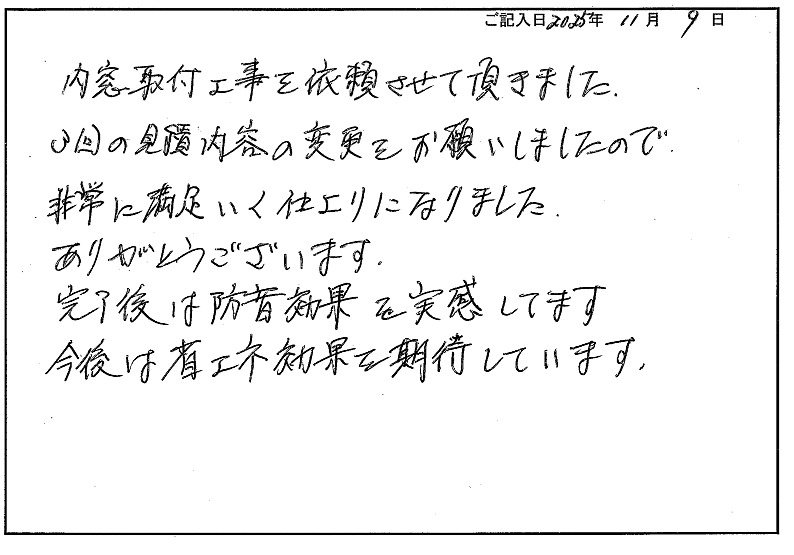 ご記入日2025年 11月 9日
内窓取付工事を依頼させて頂きました.
3回の見積内容の変更をお願いしましたので.
非常に満足いく仕上りになりました.
ありがとうございます.
完了後は防音効果を実感してます
今後は省エネ効果を期待しています.